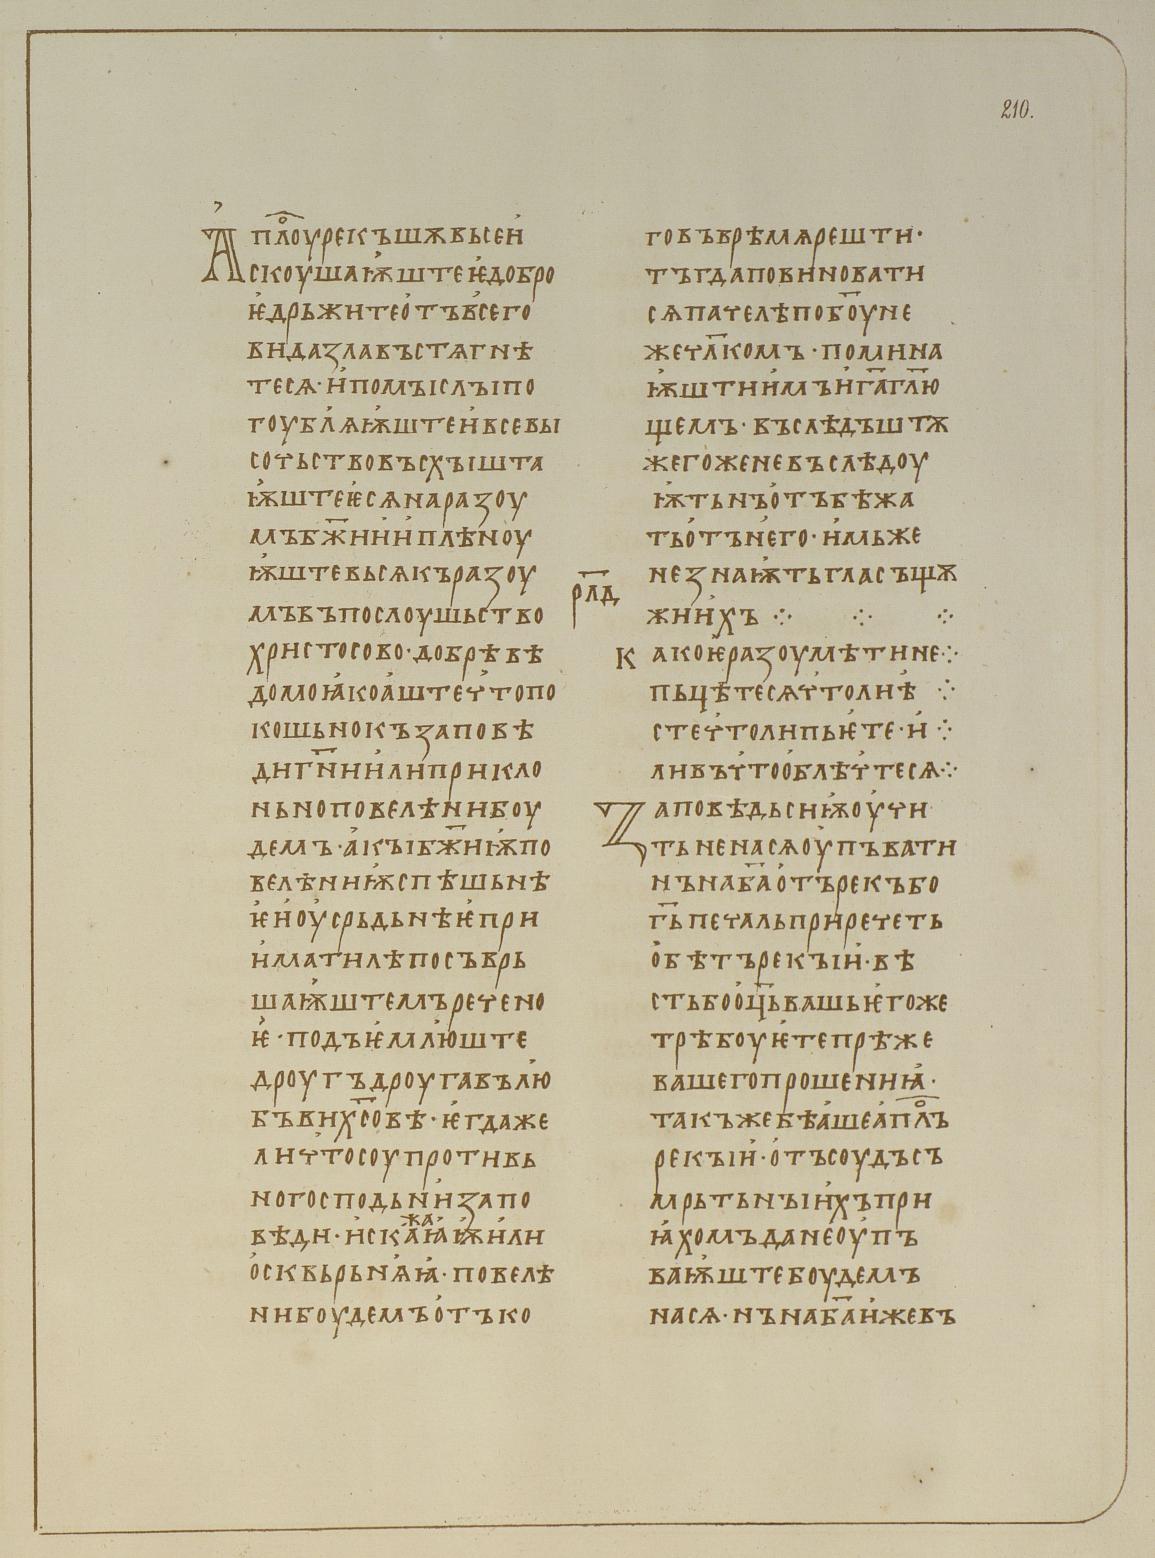 210.
Апл҃оу рекъшѫ вьсе и
скоушаѭште ѥ добро
ѥ дрьжите отъ всего
вида зла въстѧгнѣ
те сѧ · и помыслы по
гоублѧѭште и все вы
сотьство въсхышта
ѭштеѥсѧ на разоу
мъ бж҃ии и плѣноу
ѭште вьсѧкъ разоу
мъ въ послоушьство
христосово · добрѣ вѣ
домо ꙗко аште что по
кошьно къ заповѣ
ди гн҃и или прикло
ньно повелѣни боу
демъ · акы бж҃иѭ по
велѣниѭ спѣшьнѣ
ѥ и оусрьдьнѣѥ при
имати лѣпо съврь
шаѭштемъ речено
ѥ · подъѥмлюште
дроугъ дроуга въ лю
бъви хс҃овѣ · ѥгда же
ли что соупротивь
но господьни запо
вѣди · искажаѭ или
осквьрьнѧꙗ · повелѣ
ни боудемъ отъ ко
го въ врѣмѧ решти ·
тъгда повиновати
сѧ паче лѣпо бо҃у не
же чл҃комъ · помина
ѭшти имъ и га҃ гл҃ю
щемъ · въслѣдъ штѫ
жего же не въслѣдоу
ѭтьнъ отъбѣжа
ть отъ него · имьже
не знаѭть гласъ щѫ
жиихъ ⁘ ⁘ ⁘
рл҃д
Како ѥ разоумѣти не ⁘
пьцѣте сѧ что ли ѣ ⁘
сте что ли пьѥте · и ⁘
ли въ что облѣчте сѧ ⁘
Заповѣдь сиѭ оучи
ть не на сѧ оупъвати
нъ на ба҃ отърекъ бо
гь҃ печаль прирететь
обѣтъ рекыи · вѣ
сть бо оць҃ вашь ѥгоже
трѣбоуѥте прѣже
вашего прошениꙗ ·
такъже бѣаше апл҃ъ
рекыи · отъ соудъ съ
мрьтьныихъ при
ꙗхомъ да не оупъ
ваѭште боудемъ
на сѧ · нъ на ба҃ иже въ